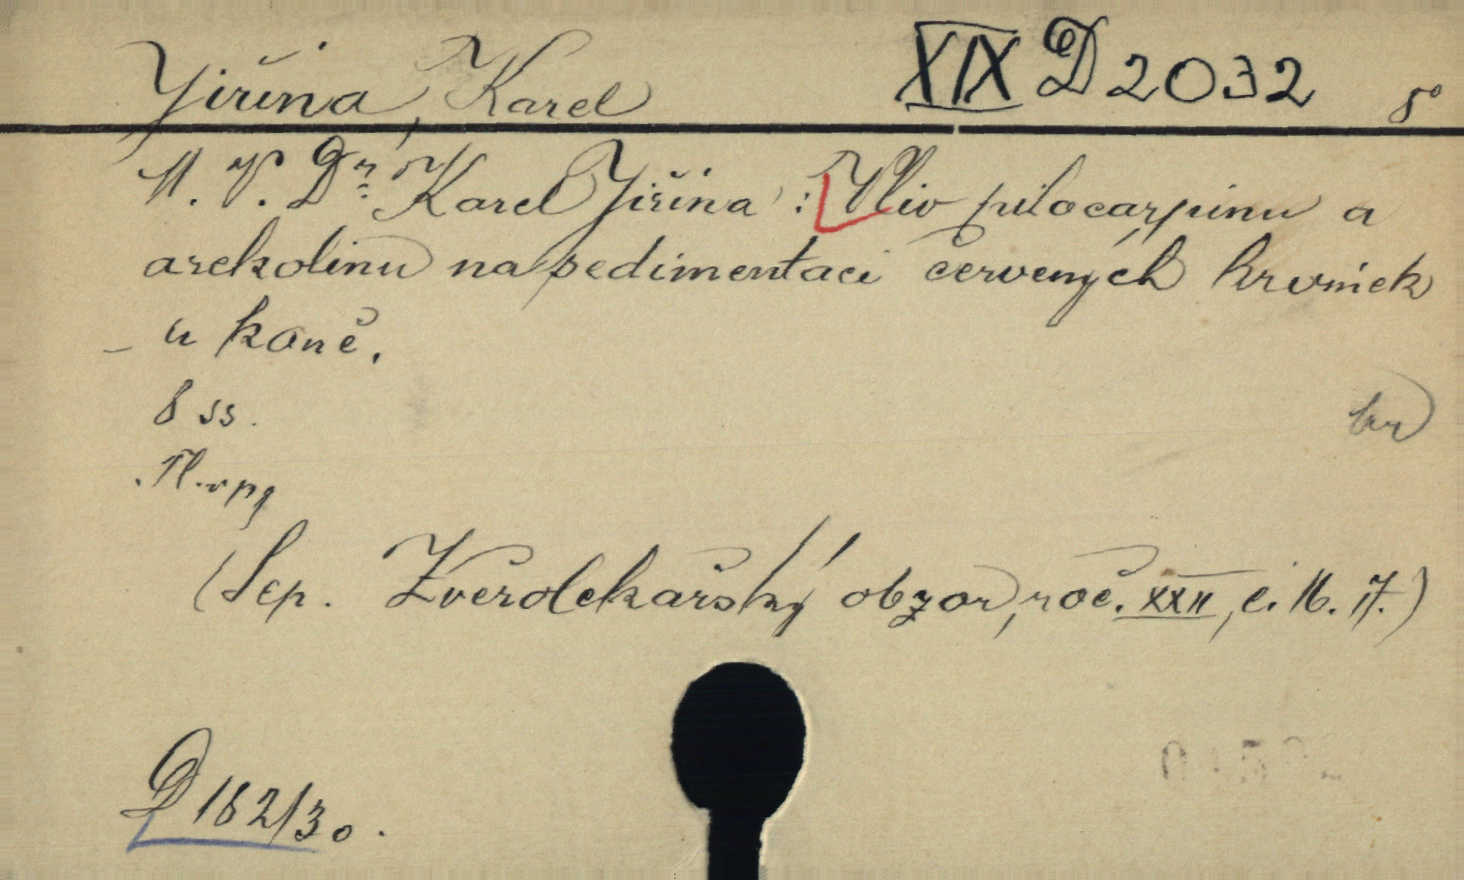 Jiřina, Karel XIX D 2032 8°
M. V. Dr. Karel Jiřina: Vliv pilocarpinu a
arekolinu na sedimentaci červených krvinek
u koně.
8 ss.
(Sep. Zvěrolékařský obzor, roč. XXII, č. 16. 17.)
D 182/30.